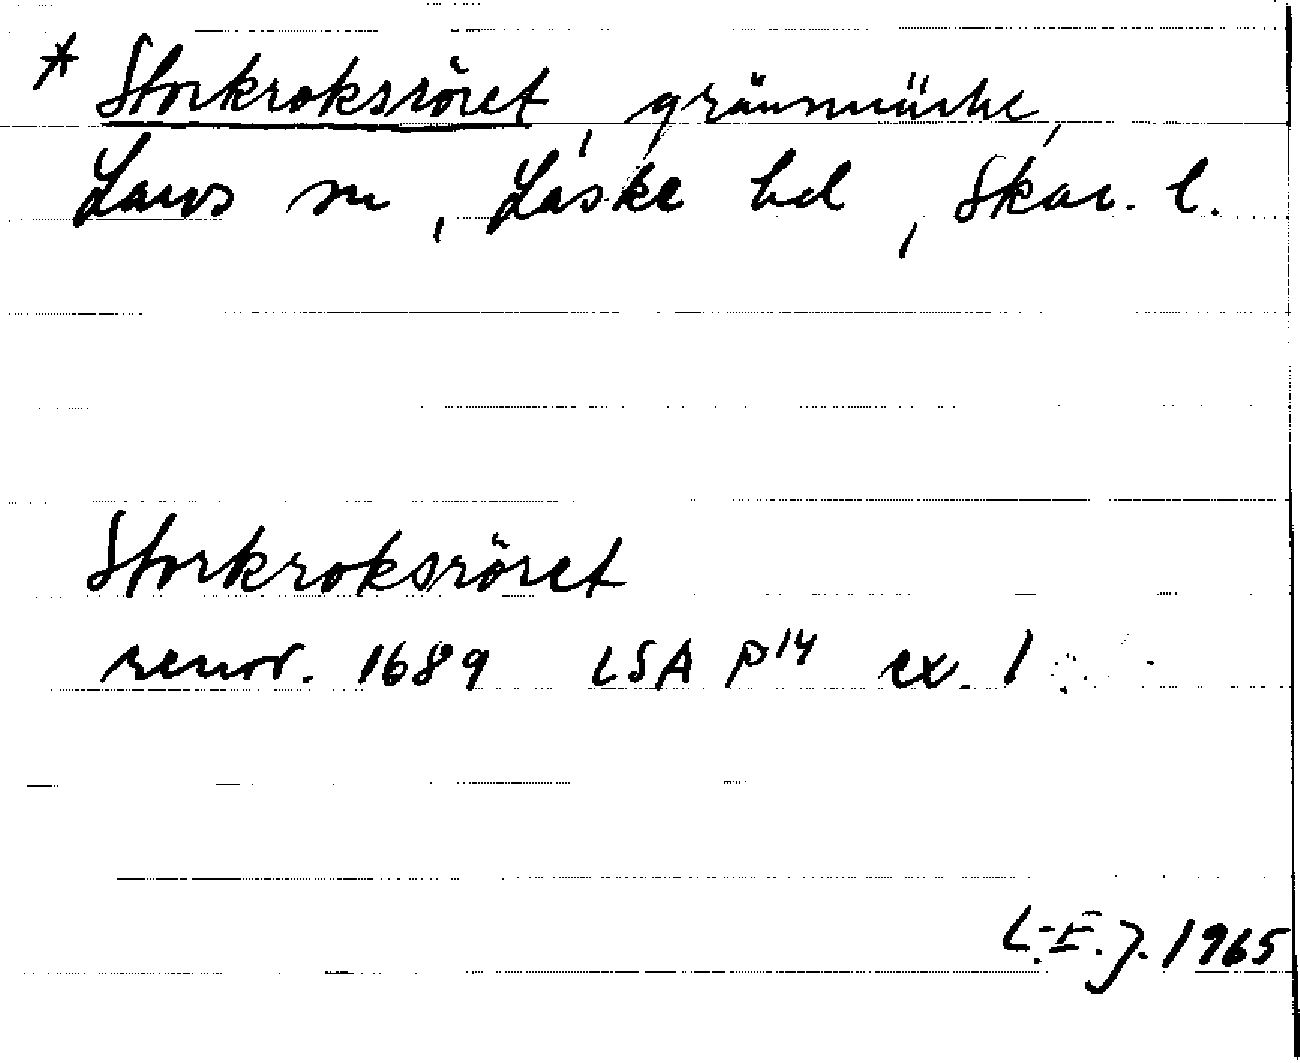 * Storkroksröret, gränsmärke,
Larvs sn, Laske hd, Skar. l.
Storkroksröret
renov. 1689 LSA P14 ex. 1
L.-E. J. 1965